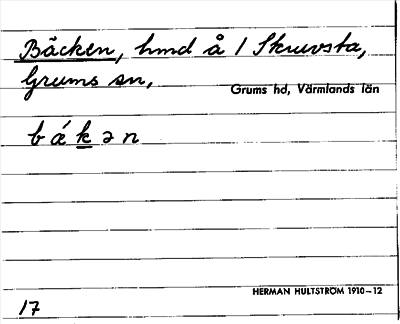 Bäcken, hmd å 1 Skruvsta,
Grums sn,
Grums hd, Värmlands län
b ǽ k ə n
HERMAN HULTSTRÖM 1910-12
17